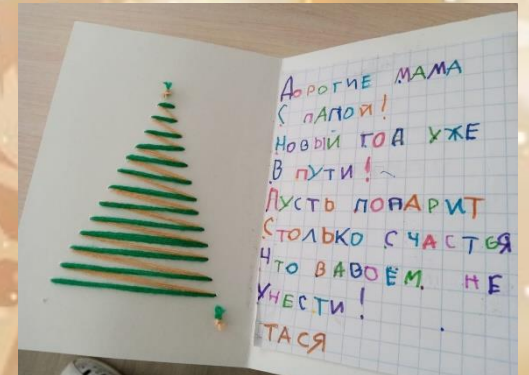 ДОРОГИЕ МАМА
С ПАПОЙ!
НОВЫЙ ГОД УЖЕ
В ПУТИ!
ПУСТЬ ПОДАРИТ
СТОЛЬКО СЧАСТЬЯ
ЧТО ВДВОЁМ НЕ
УНЕСТИ!
ТАСЯ